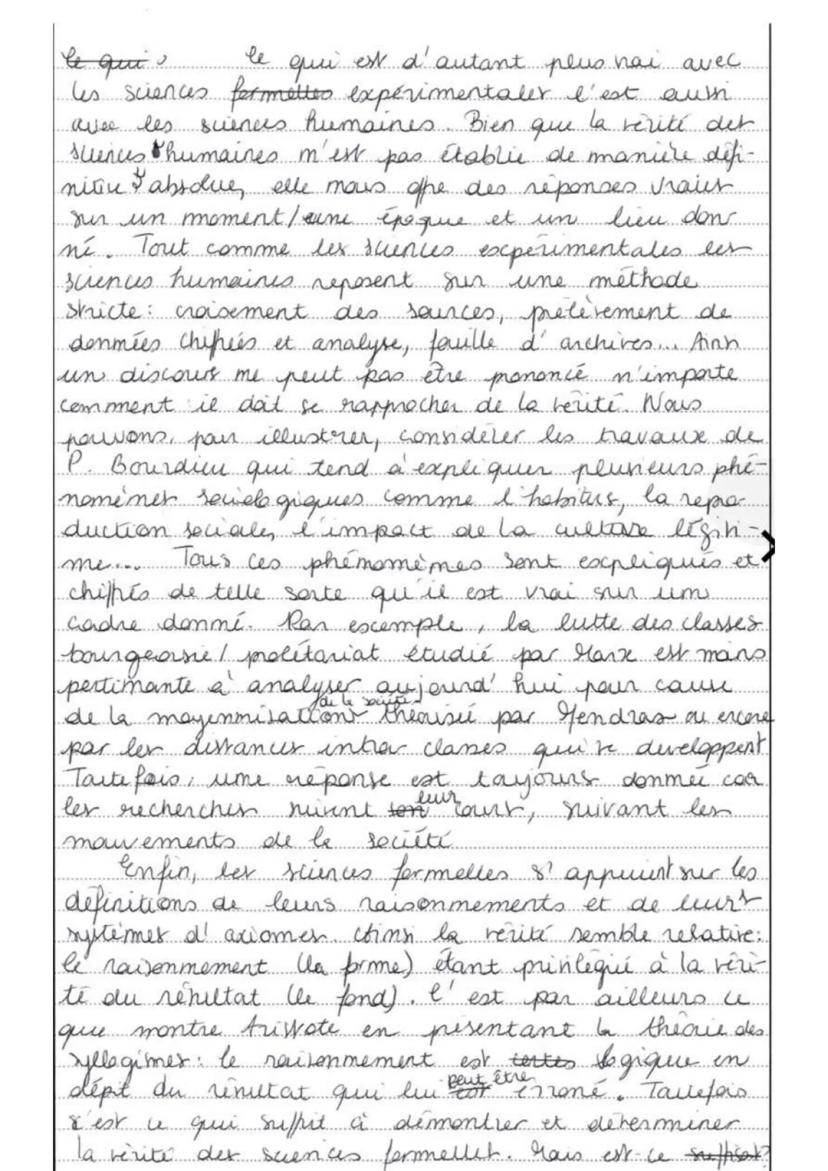 ~~Ce qui~~ , Ce qui est d'autant plus vrai avec
les sciences ~~formelles~~ expérimentales l'est aussi
avec les sciences humaines. Bien que la vérité des
sciences humaines n'est pas établie de manière défi-
nitive absolue, elle nous offre des réponses vraies
sur un moment/une époque et un lieu don-
né. Tout comme les sciences expérimentales les
sciences humaines reposent sur une méthode
stricte : croisement des sources, prélèvement de
données chiffrées et analyse, fouille d'archives... Ainsi
un discours ne peut pas être prononcé n'importe
comment il doit se rapprocher de la vérité. Nous
pouvons, pour illustrer, considérer les travaux de
P. Bourdieu qui tend à expliquer plusieurs phé-
nomènes sociologiques comme l'habitus, la repro-
duction sociale, l'impact de la culture légiti-
me... Tous ces phénomèmes sont expliqués et
chiffrés de telle sorte qu'il est vrai sur un
cadre donné. Par exemple, la lutte des classes
bourgeoisie/prolétariat étudié par Marx est moins
pertinante à analyser aujourd'hui pour cause
de la moyennisation de la société théorisée par Mendras ou encore
par les distances intra classes qui se developpent
Toutefois, une réponse est toujours donnée car
les recherches suivent ~~son~~ leur cours, suivant les
mouvements de la société
Enfin, les sciences formelles s'appuient sur les
définitions de leurs raisonnements et de leurs
systèmes d'axiomes. Ainsi la vérité semble relative :
le raisonnement (la forme) étant privilégié à la véri-
té du résultat (le fond). C'est par ailleurs ce
que montre Aristote en présentant la théorie des
syllogimes : le raisonnement est logique en
dépit du résultat qui lui peut être erroné. Toutefois
s'est ce qui suffit à démontrer et déterminer
la vérité des sciences formelles. Mais est-ce ~~suffisant?~~